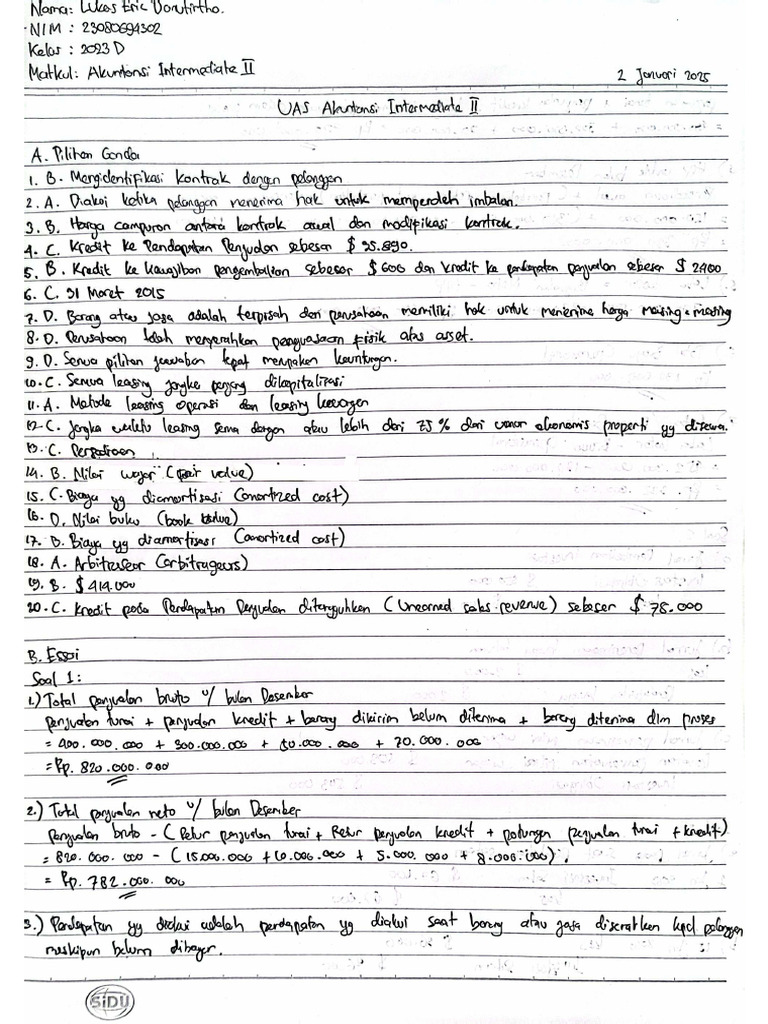 Nama: Lukas Eric Dorutirtho.
NIM : 23080694302
Kelas : 2023 D
Matkul: Akuntansi Intermediate II
2 Januari 2025
UAS Akuntansi Intermediate II
A. Pilihan Ganda
1. B. Mengidentifikasi kontrak dengan pelanggan
2. A. Diakui ketika pelanggan menerima hak untuk memperoleh imbalan.
3. B. Harga campuran antara kontrak awal dan modifikasi kontrak.
4. C. Kredit ke Pendapatan Penjualan sebesar $ 95.890.
5. B. Kredit ke kewajiban pengembalian sebesar $ 600 dan kredit ke pendapatan penjualan sebesar $ 2,400
6. C. 31 Maret 2015
7. D. Barang atau jasa adalah terpisah dari perusahaan memiliki hak untuk menerima harga masing-masing
8. D. Perusahaan telah menyerahkan penguasaan fisik atas asset.
9. D. Semua pilihan jawaban tepat merupakan keuntungan.
10. C. Semua leasing jangka panjang dikapitalisasi
11. A. Metode leasing operasi dan leasing keuangan
12. C. Jangka waktu leasing sama dengan atau lebih dari 75 % dari umur ekonomis properti yg disewa.
13. C. Persediaan
14. B. Nilai wajar (fair value)
15. C. Biaya yg diamortisasi (amortized cost)
16. D. Nilai buku (book value)
17. D. Biaya yg diamortisasi (amortized cost)
18. A. Arbitraseor (arbitrageurs)
19. B. $ 414.000
20. C. Kredit pada Pendapatan Penjualan ditangguhkan (Unearned sales revenue) sebesar $ 78.000
B. Essai
Soal 1:
1.) Total penjualan bruto u/ bulan Desember
penjualan tunai + penjualan kredit + barang dikirim belum diterima + barang diterima dlm proses
= 400.000.000 + 300.000.000 + 50.000.000 + 70.000.000
= Rp. 820.000.000
2.) Total penjualan neto u/ bulan Desember
penjualan bruto - (Retur penjualan tunai + Retur penjualan kredit + potongan penjualan tunai + kredit)
= 820.000.000 - (15.000.000 + 10.000.000 + 5.000.000 + 8.000.000)
= Rp. 782.000.000
3.) Pendapatan yg diakui adalah pendapatan yg diakui saat barang atau jasa diserahkan kpd pelanggan
meskipun belum dibayar.
SIDU